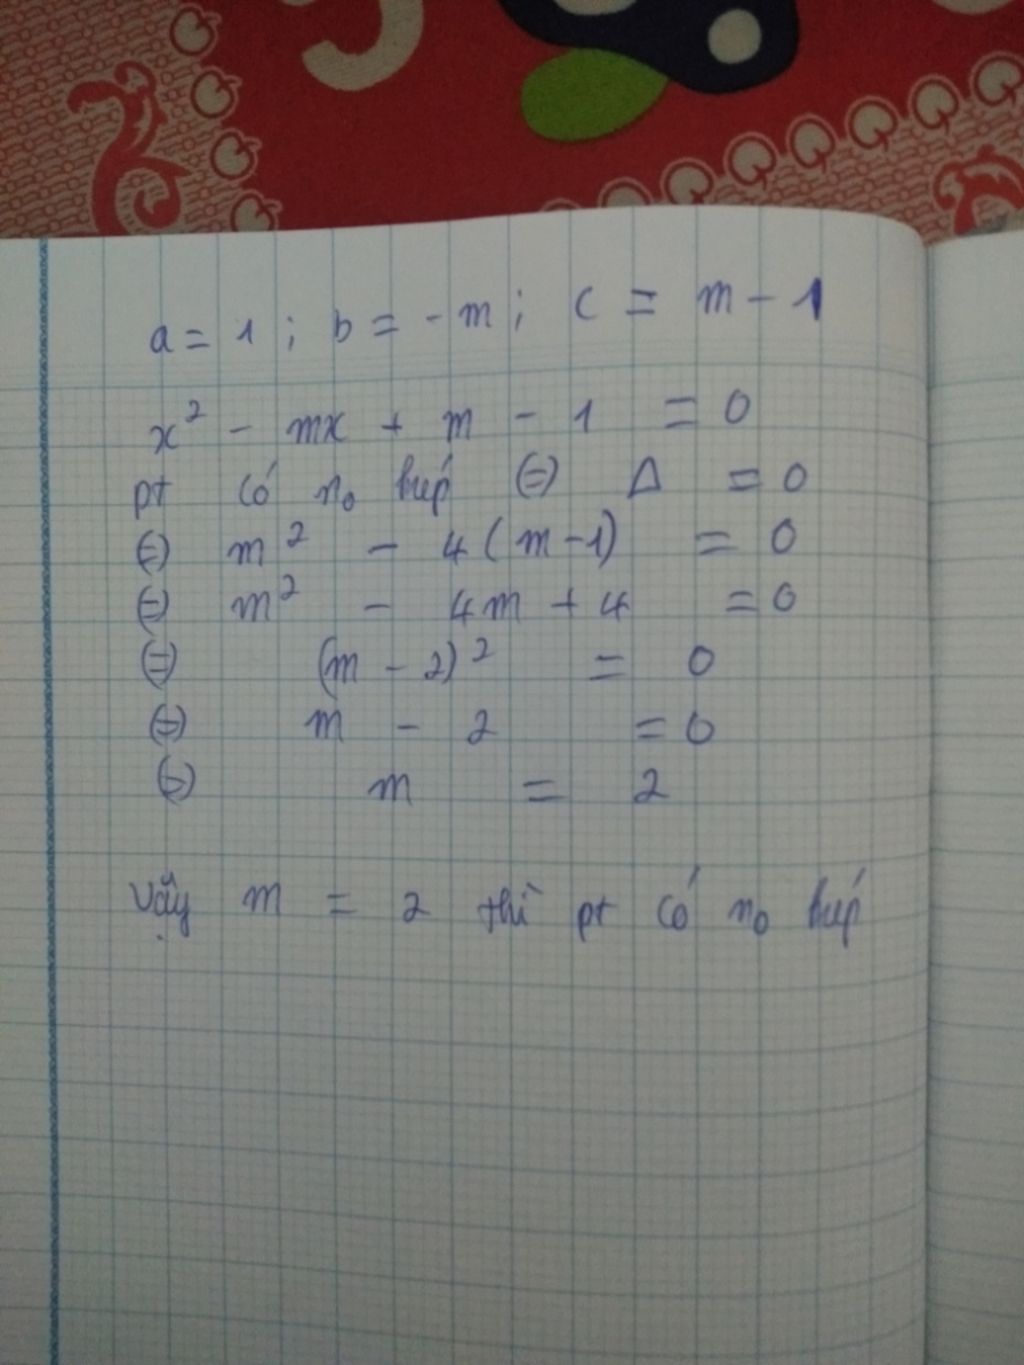 a = 1 ; b = - m ; c = m - 1
x² - mx + m - 1 = 0
pt có n₀ kép (=) Δ = 0
(=) m² - 4 ( m - 1) = 0
(=) m² - 4m + 4 = 0
(=) (m - 2)² = 0
(=) m - 2 = 0
(=) m = 2
Vậy m = 2 thì pt có n₀ kép